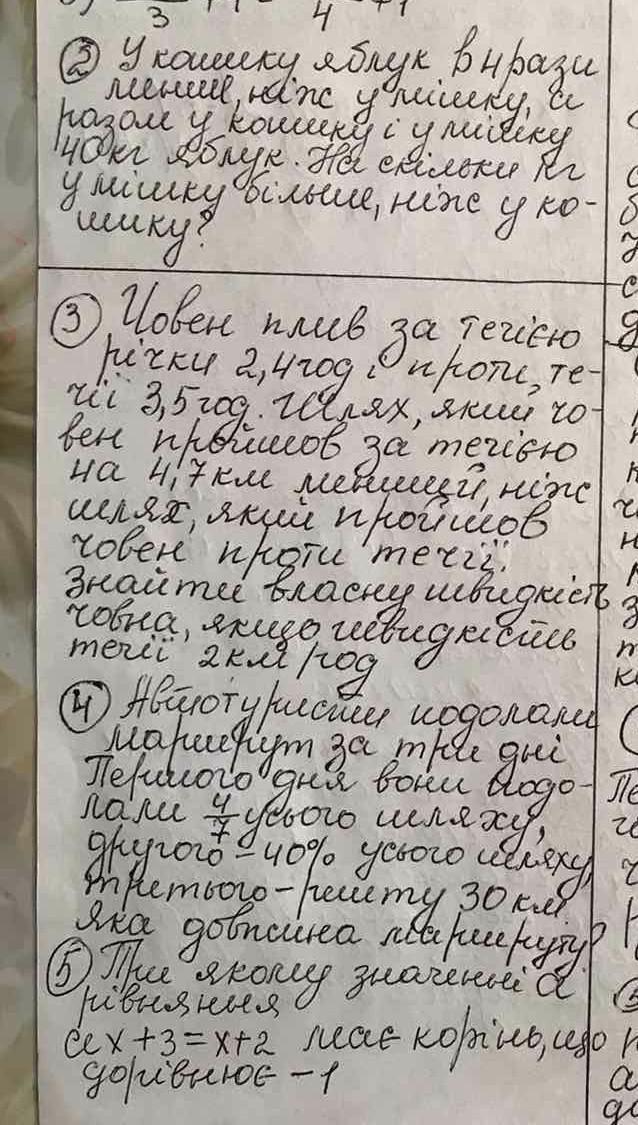 3
4
② У кошику яблук в 4 рази
менше, ніж у мішку, а
разом у кошику і у мішку
40кг яблук. На скільки кг
у мішку більше, ніж у ко-
шику?
③ Човен плив за течією
річки 2,4год і проти те-
чії 3,5год. Шлях, який чо-
вен пройшов за течією
на 4,7км менший, ніж
шлях, який пройшов
човен проти течії.
Знайти власну швидкість
човна, якщо швидкість
течії 2км/год
④ Автотуристи подолали
маршрут за три дні
Першого дня вони подо-
лали 4/7 усього шляху,
другого - 40% усього шляху,
третього - решту 30км.
яка довжина маршруту?
⑤ При якому значенні а
рівняння
ах+3=х+2 має корінь, що
дорівнює -1